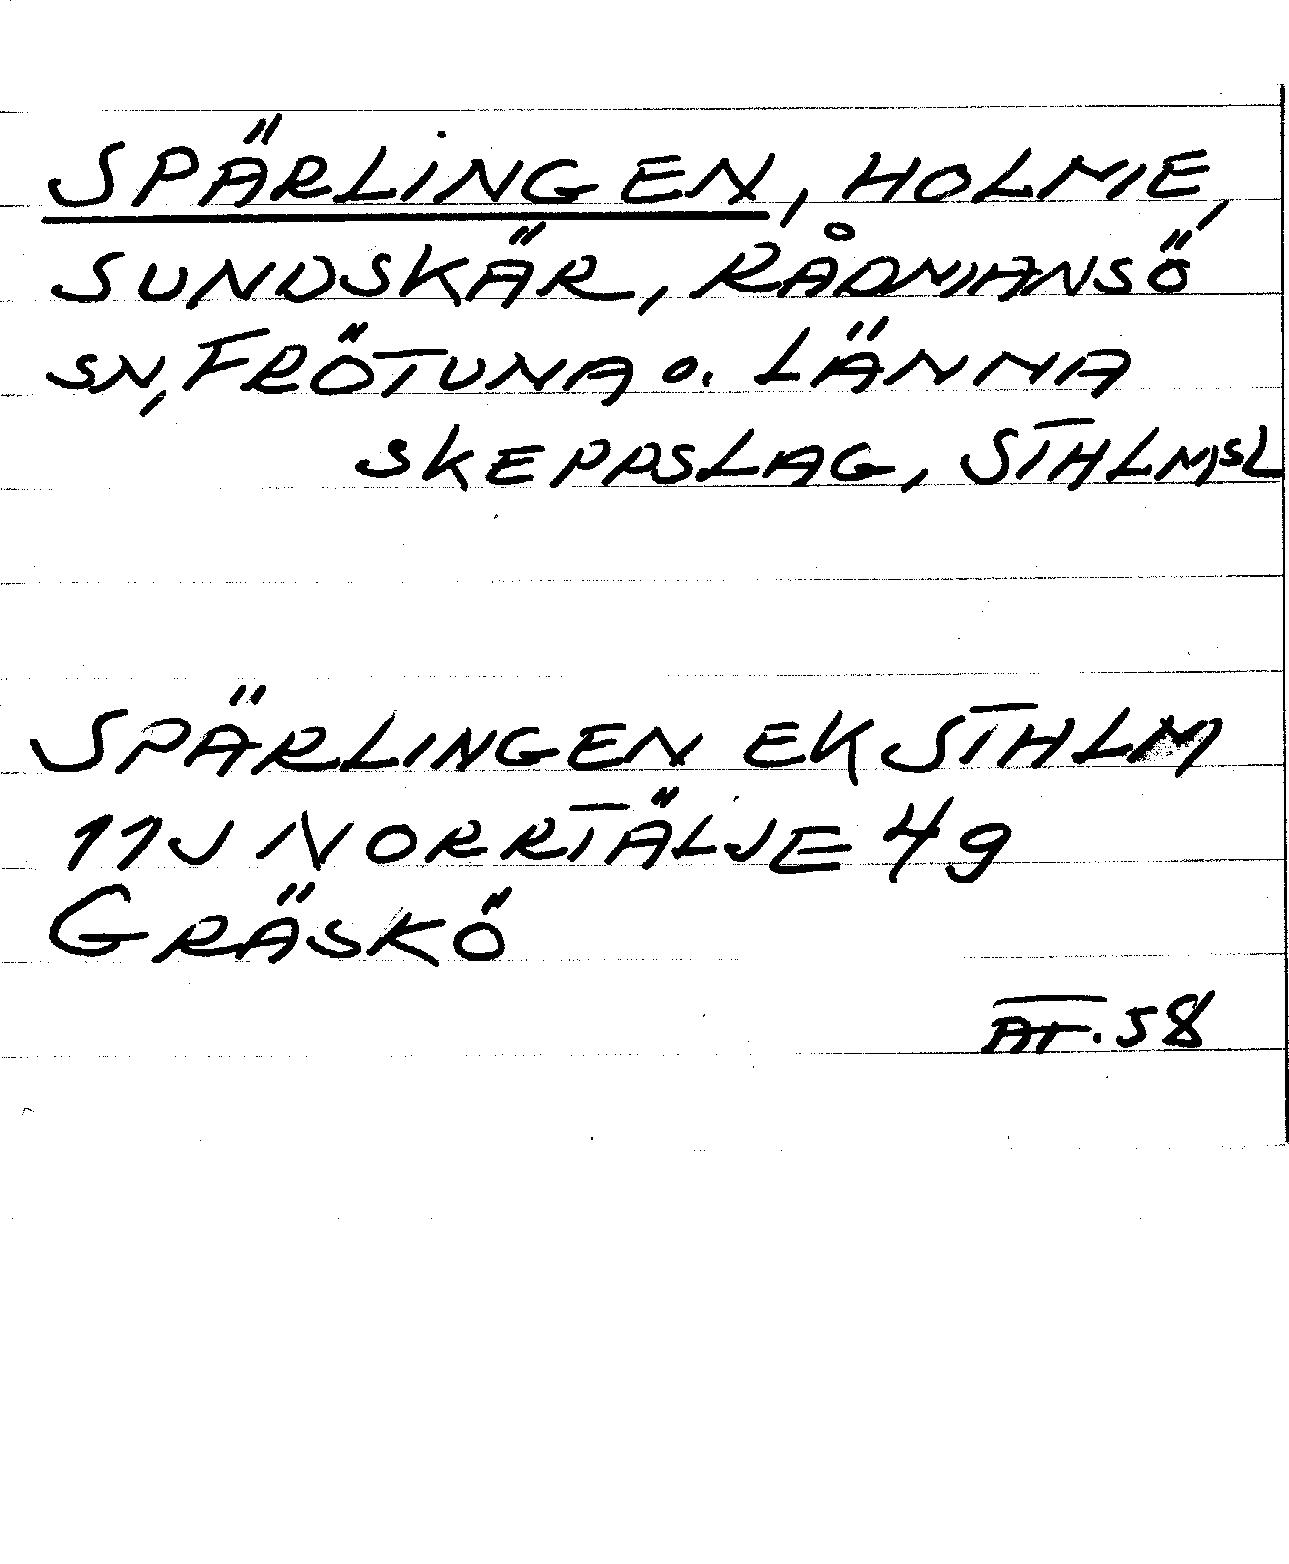 SPÄRLINGEN, HOLME,
SUNDSKÄR, RÅDMANSÖ
SN, FRÖTUNA o. LÄNNA
SKEPPSLAG, STHLMSL
SPÄRLINGEN EK STHLM
11J NORRTÄLJE 49
GRÄSKÖ
AT. 58